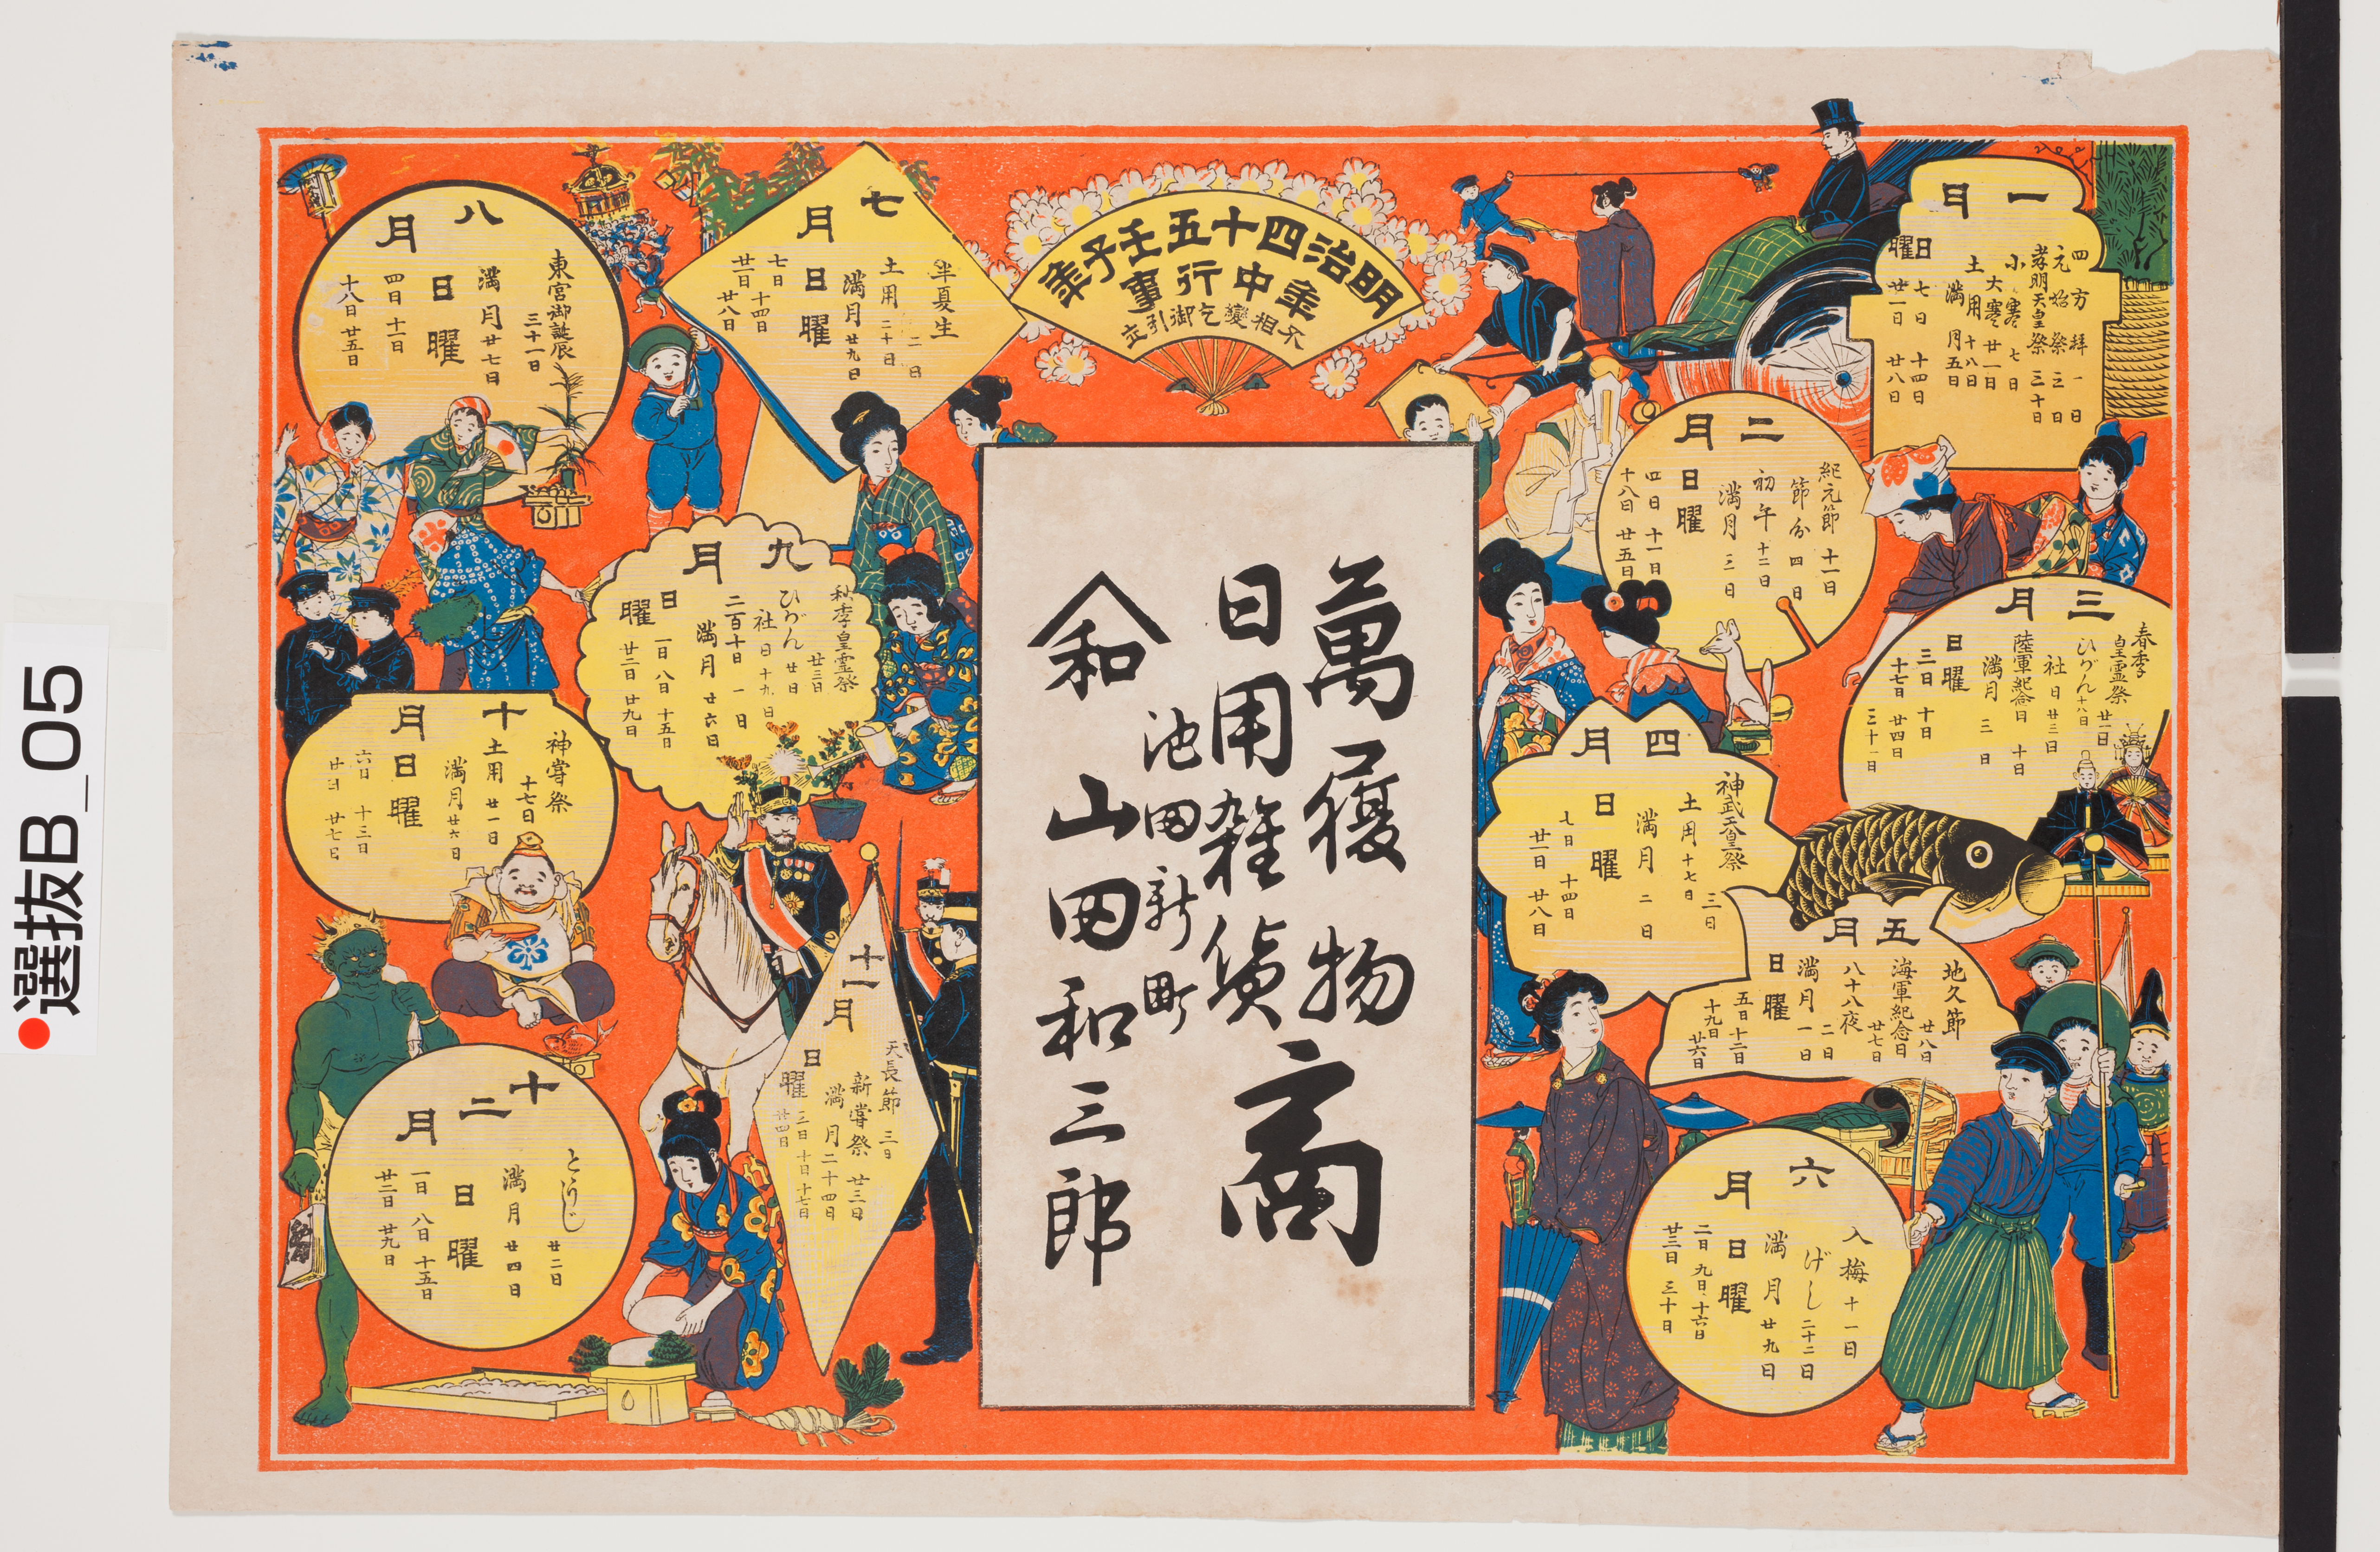 明治四十五壬子年
年中行事
不相變乞御引立
萬履物
日用雑貨商
池田新町
和
山田和三郎
一月
四方拝 一日
元始祭 三日
孝明天皇祭 三十日
小寒 七日
大寒 廿一日
土用 十八日
満月 五日
日曜
七日 十四日
廿一日 廿八日
二月
紀元節 十一日
節分 四日
初午 十二日
満月 三日
日曜
四日 十一日
十八日 廿五日
三月
春季皇霊祭 廿一日
ひがん 十八日
社日 廿三日
陸軍紀念日 十日
満月 三日
日曜
三日 十日
十七日 廿四日
三十一日
四月
神武天皇祭 三日
土用 十七日
満月 二日
日曜
七日 十四日
廿一日 廿八日
五月
地久節 廿八日
海軍紀念日 廿七日
八十八夜 二日
満月 一日
日曜
五日 十二日
十九日 廿六日
六月
入梅 十一日
げし 二十二日
満月 廿九日
日曜
二日 九日 十六日
廿三日 三十日
七月
半夏生 二日
土用 二十日
満月 廿九日
日曜
七日 十四日
廿一日 廿八日
八月
東宮御誕辰 三十一日
満月 廿七日
日曜
四日 十一日
十八日 廿五日
九月
秋季皇霊祭 廿三日
ひがん 廿日
社日 十九日
二百十日 一日
満月 廿六日
日曜
一日 八日 十五日
廿二日 廿九日
十月
神嘗祭 十七日
土用 廿一日
満月 廿六日
日曜
六日 十三日
廿日 廿七日
十一月
天長節 三日
新嘗祭 廿三日
満月 二十四日
日曜
三日 十日 十七日
廿四日
十二月
とうじ 廿二日
満月 廿四日
日曜
一日 八日 十五日
廿二日 廿九日
選抜B_05